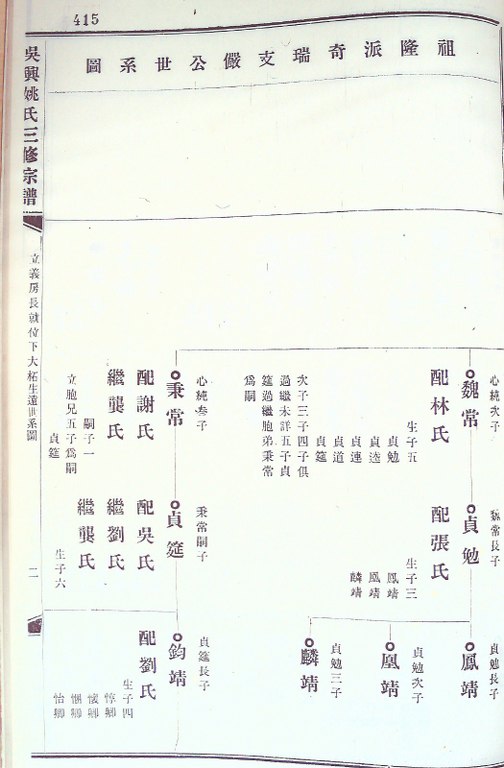 415
祖隆派奇瑞支儼公世系圖
吳興姚氏三修宗譜
心純次子
魏常
配林氏
生子五
貞勉
貞逵
貞連
貞道
貞筵
次子三子四子俱
過繼未詳五子貞
筵過繼胞弟秉常
為嗣
心純叁子
秉常
配謝氏
繼龔氏
嗣子一
立胞兄五子為嗣
貞筵
魏常長子
貞勉
配張氏
生子三
鳳靖
凰靖
麟靖
秉常嗣子
貞筵
配吳氏
繼劉氏
繼龔氏
生子六
貞勉長子
鳳靖
貞勉次子
凰靖
貞勉三子
麟靖
貞筵長子
鈞靖
配劉氏
生子四
惇卿
怡卿
立義房長就位下大柘生遠世系圖
二